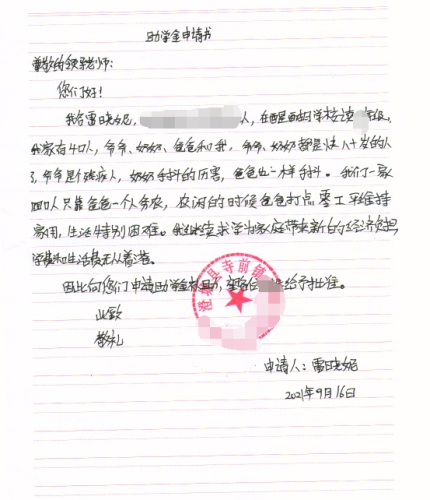 助学金申请书
尊敬的领导老师:
您们好!
我名雷晓妮, 人, 在 学校读
我家有4口人, 爷爷、奶奶、爸爸和我, 爷爷、奶奶都是快八十岁的人
了, 爷爷是个残疾人, 奶奶手抖的厉害, 爸爸也一样手抖。我们一家
四口人只靠爸爸一个人务农, 农闲的时候爸爸打点零工来维持
家用, 生活特别困难。我继续求学为家庭带来新的的经济负担
学费和生活费无从着落。
因此向您们申请助学金 给予批准。
此致
敬礼
澄城县寺前镇
申请人: 雷晓妮
2021年9月16日